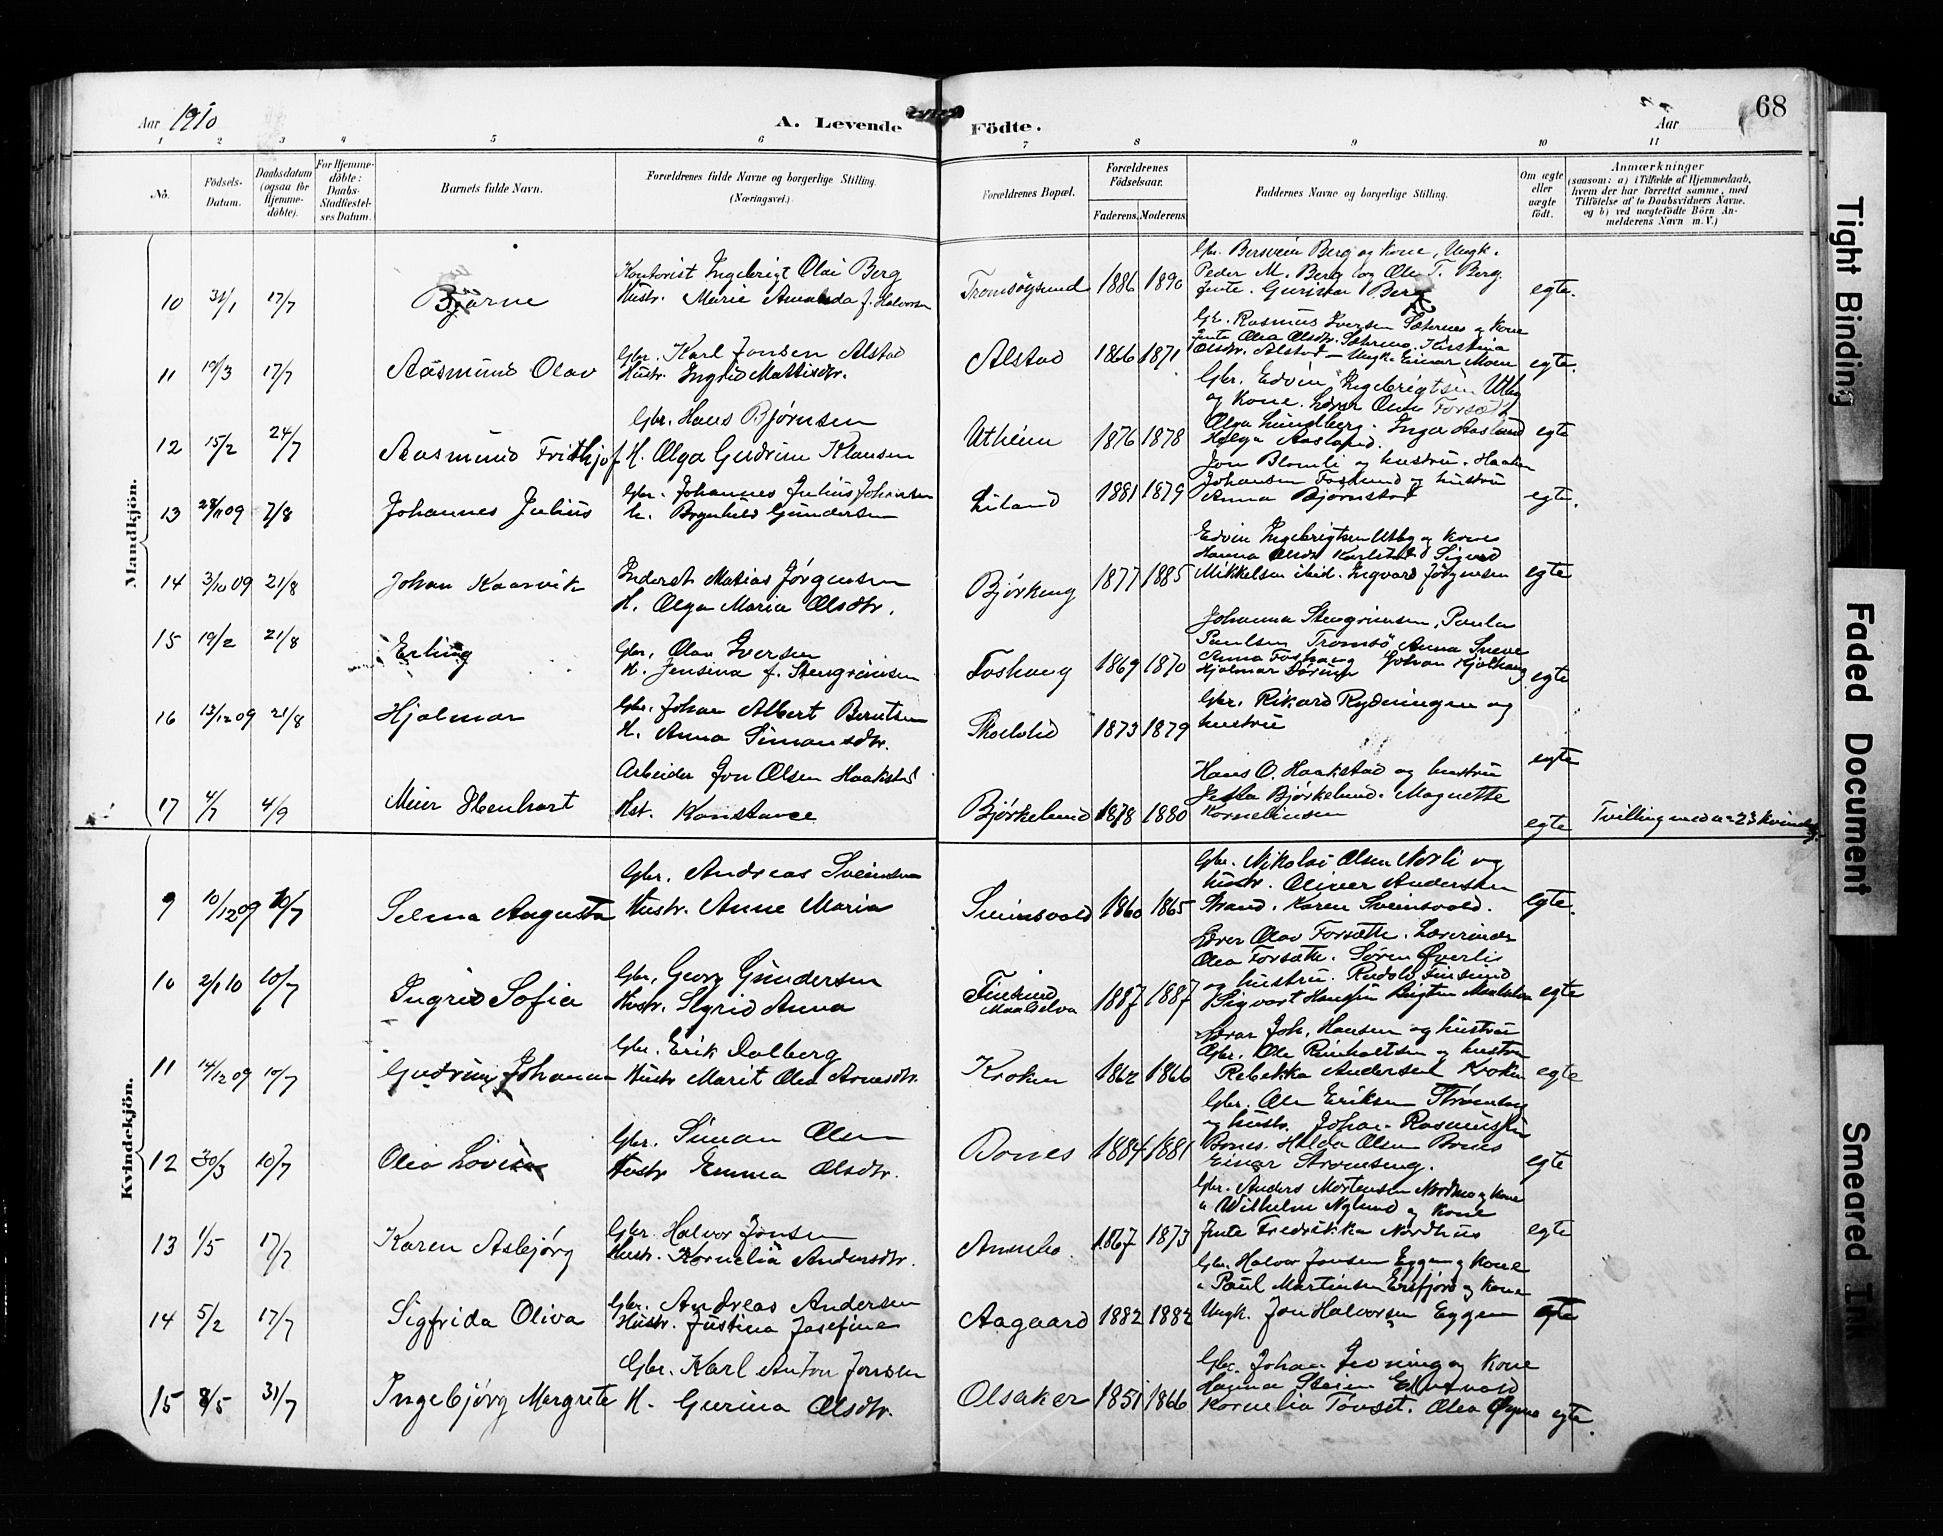 Aar 1910
A. Levende Födte.
Aar
68
1 2 3 4 5 6 7 8 9 10 11
No.
Födsels-Datum.
Daabsdatum (ogsaa for Hjemme-döbte).
For Hjemme-döbte: Daabs-Stadfæstel-ses Datum.
Barnets fulde Navn.
Forældrenes fulde Navne og borgerlige Stilling. (Næringsvei.)
Forældrenes Bopæl.
Forældrenes Födselsaar.
Faderens. Moderens.
Faddernes Navne og borgerlige Stilling.
Om ægte eller uægte født.
Anmærkninger
(saasom: a) i Tilfælde af Hjemmedaab, hvem der har forrettet samme, med Tilföielse af to Daabsvidners Navne. og b) ved uægtefödte Börn An-melderens Navn m. V.)
Mandkjön.
10 31/1 17/7 Bjarne
Kontorist Ingebrigt Olai Berg
Hustr. Marie Amanda f. Halvorsen
Tromsøysund 1886 1890
Gbr. Bersvein Berg og Kone, Ungk.
Peder M. Berg og Ole T. Berg.
Jente. Gurina Berg
egte.
11 19/3 17/7 Aasmund Olav
Gbr. Karl Jonsen Alstad
Hustr. Ingrid Mattisdtr.
Alstad 1866 1871
Gbr. Rasmus Iversen Sæternes og Kone
Jente Olea Olsdtr. Kirstina
Olsdtr. Alstad - Ungk. Einar Moen
egte.
12 15/2 24/7 Aasmund Fridthjof
Gbr. Hans Bjørnsen
H. Olga Gudrun Klausen
Utheim 1876 1878
Gbr. Edvin Ingebrigtsen Utby
og Kone. Lærer Olav Forsæth
Olga Lundberg. Inga Aasland
Helga Aasland.
egte
13 28/11 09 7/8 Johannes Julius
Gbr. Johannes Julius Johansen
H. Brynhild Gundersen
Liland 1881 1879
Jon Blomli og hustru. Haakon
Johansen Foslund og hustru
Anna Bjørnstad
egte.
14 3/10 09 21/8 Johan Kaarvik
Inderst Matias Jørgensen
H. Olga Maria Olsdtr.
Bjørkeng 1877 1885
Edvin Ingebrigtsen Utby og Kone
Hanna Olsdtr Karlstad Sigurd
Mikkelsen ibid. Ingvard Jørgensen
egte
15 19/2 21/8 Erling
Gbr. Olav Iversen
H. Jensina f. Stengrimsen
Foshaug 1869 1870
Johanna Stengrimsen, Paula
Paulsen Tromsö Anna Sneve
Anna Foshaug Johan Hjelhaug
Hjalmar
egte
16 13/12 09 21/8 Hjalmar
Gbr. Johan Albert Berntsen
H. Anna Simonsdtr.
1873 1879
Gbr. Rikard Rydningen og
hustru
egte
17 4/7 4/9 Meier Ebenhart
Arbeider Jon Olsen Haakstad
Hst. Konstance
Bjørkelund 1878 1880
Hans O. Haakstad og hustru
Jetta Bjørkelund. Magnette
Kornelinsen
egte
Tvilling med no 23 kvindekj.
Kvindekjön.
9 10/12 09 10/7 Selma Augusta
Gbr. Andreas Sveinsen
Hustr. Anne Maria
Sveinsvold 1860 1865
Gbr. Nikolai Olsen Norli og
hustr. Oliver Andersen
Strand. Karen Sveinsvold.
egte.
10 2/1 10 10/7 Ingrid Sofia
Gbr. Georg Gundersen
Hustr. Sigrid Anna
Finlund
Maalselva
1887 1887
Lærer Olav Forsæth. Lærerinde
Olea Forsæth. Søren Øverli
og hustru. Rudolf Finlund
Sigvart Hansen
egte
11 14/12 09 10/7 Gudrun Johanne
Gbr. Erik Dalberg
Hustr Marit Olea Arnesdtr.
Kroken 1862 1866
Lærer Joh. Hansen og hustru
Gbr. Ole Reinholtsen og hustru
Rebekka Andersen Kroken
egte
12 30/3 10/7 Olea Lovise
Gbr. Simon Olsen
Hustr Emma Olsdtr.
Bones 1884 1881
Gbr. Ole Eriksen Strömseng
og hustr. Johan Rasmussen
Bones. Hilda Olsen Bones
Einar Strømseng.
egte
13 1/5 17/7 Karen Asbjørg
Gbr. Halvor Jonsen
Hustr. Kornelia Andersdtr.
Annelo. 1867 1873
Gbr. Anders Mortensen Nordmo og Kone
" Wilhelm Nylund og Kone
Jente Fredrikka Nordhus
egte
14 5/2 17/7 Sigfrida Oliva
Gbr. Andreas Andersen
Hustr. Justina Josefine
Aagaard 1882 1882
Gbr. Halvor Jonsen Eggen og Kone
" Paul Martinsen Ersfjord og Kone
Ungk. Jon Halvorsen Eggen
egte
15 8/5 31/7 Ingebjørg Margrete
Gbr. Karl Anton Jonsen
H. Gurina Olsdtr.
Olsaker 1851 1866
Gbr. Johan og Kone
Hagina Steien
Kornelia Tonset. Olea
egte.
Tight Binding
Faded Document
Smeared Ink